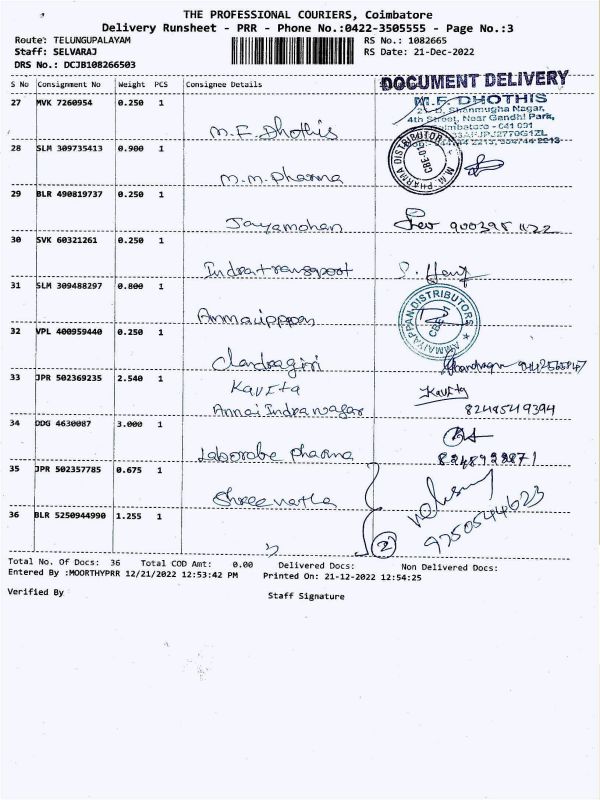 THE PROFESSIONAL COURIERS, Coimbatore
Delivery Runsheet - PRR - Phone No.:0422-3505555 - Page No.:3
Route: TELUNGUPALAYAM
RS No.: 1082665
Staff: SELVARAJ
RS Date: 21-Dec-2022
DRS No.: DCJB108266503
S No Consignment No Weight PCS Consignee Details
DOCUMENT DELIVERY
27 MVK 7260954 0.250 1
M.F. Dhothis
M.F. DHOTHIS
Shanmugha Nagar,
4th Street, Near Gandhi Park,
Coimbatore - 641 001
28 SLM 309735413 0.900 1
M.M. Pharma
M.M. PHARMA DISTRIBUTORS
CBE
29 BLR 490819737 0.250 1
Jayamohan
30 SVK 60321261 0.250 1
Indra transport
31 SLM 309488297 0.800 1
Ammaiappan
AMMAIYAPPAN DISTRIBUTORS
CBE
32 VPL 400959440 0.250 1
Chandragiri
33 JPR 502369235 2.540 1
Kavita
Annai Indra nagar
Kavita
8248549394
34 DDG 4630087 3.000 1
Laborobe Pharma
35 JPR 502357785 0.675 1
Shree natha
9750544623
36 BLR 5250944990 1.255 1
2
Total No. Of Docs: 36 Total COD Amt: 0.00 Delivered Docs: Non Delivered Docs:
Entered By :MOORTHYPRR 12/21/2022 12:53:42 PM Printed On: 21-12-2022 12:54:25
Verified By
Staff Signature